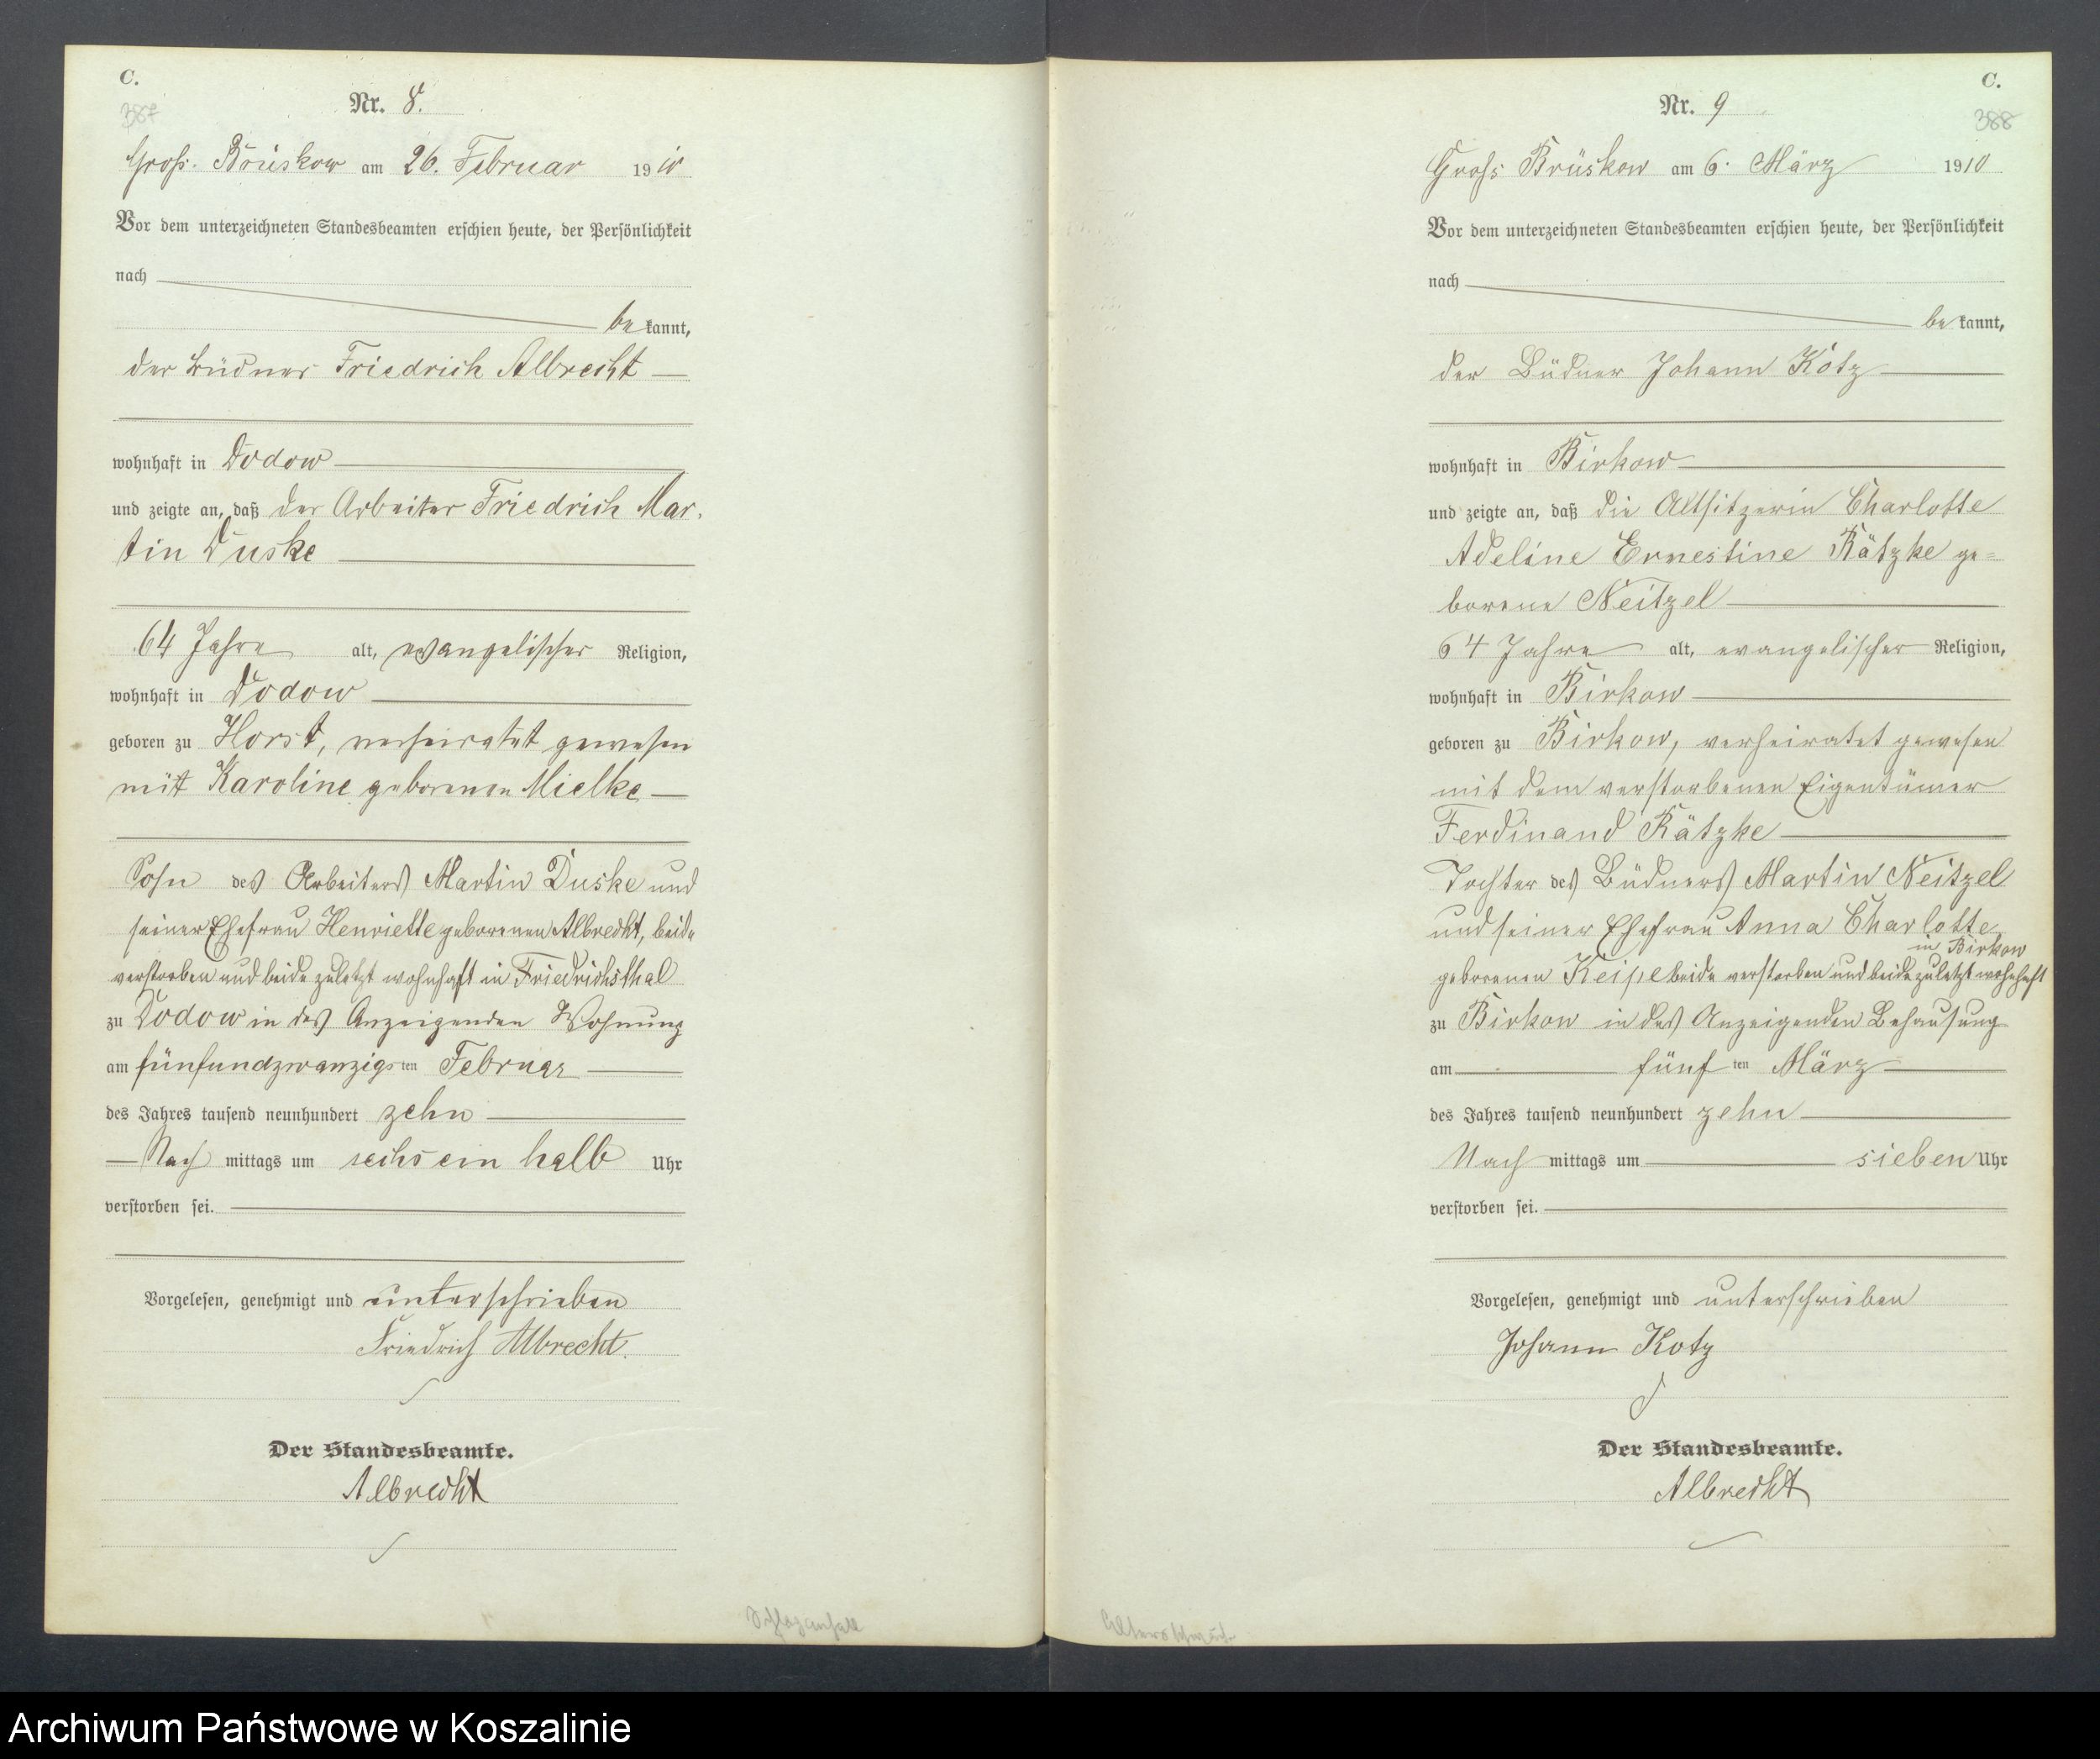 C.
387
Nr. 8.
Groß. Brüskow am 26. Februar 1910
Vor dem unterzeichneten Standesbeamten erschien heute, der Persönlichkeit
nach
bekannt,
der Büdner Friedrich Albrecht
wohnhaft in Dodow
und zeigte an, daß der Arbeiter Friedrich Mar-
tin Duske
64 Jahre alt, evangelischer Religion,
wohnhaft in Dodow
geboren zu Horst, verheiratet gewesen
mit Karoline geborenen Mielke
Sohn des Arbeiters Martin Duske und
seiner Ehefrau Henriette geborenen Albrecht, beide
verstorben und beide zuletzt wohnhaft in Friedrichsthal
zu Dodow in des Anzeigenden Wohnung
am fünfundzwanzigsten Februar
des Jahres tausend neunhundert zehn
Nach mittags um sechs ein halb Uhr
verstorben sei.
Vorgelesen, genehmigt und unterschrieben
Friedrich Albrecht.
Der Standesbeamte.
Albrecht
Schlaganfall
C.
388
Nr. 9
Gross Brüskow am 6. März 1910
Vor dem unterzeichneten Standesbeamten erschien heute, der Persönlichkeit
nach
bekannt,
der Büdner Johann Kotz
wohnhaft in Birkow
und zeigte an, daß die Altsitzerin Charlotte
Adeline Ernestine Rätzke ge=
borene Neitzel
64 Jahre alt, evangelischer Religion,
wohnhaft in Birkow
geboren zu Birkow, verheiratet gewesen
mit dem verstorbenen Eigentümer
Ferdinand Rätzke
Tochter des Büdners Martin Neitzel
und seiner Ehefrau Anna Charlotte
in Birkow
geborenen Keipe beide verstorben und beide zuletzt wohnhaft
zu Birkow in des Anzeigenden Behausung
am fünften März
des Jahres tausend neunhundert zehn
Nach mittags um sieben Uhr
verstorben sei.
Vorgelesen, genehmigt und unterschrieben
Johann Kotz
Der Standesbeamte.
Albrecht
Archiwum Państwowe w Koszalinie